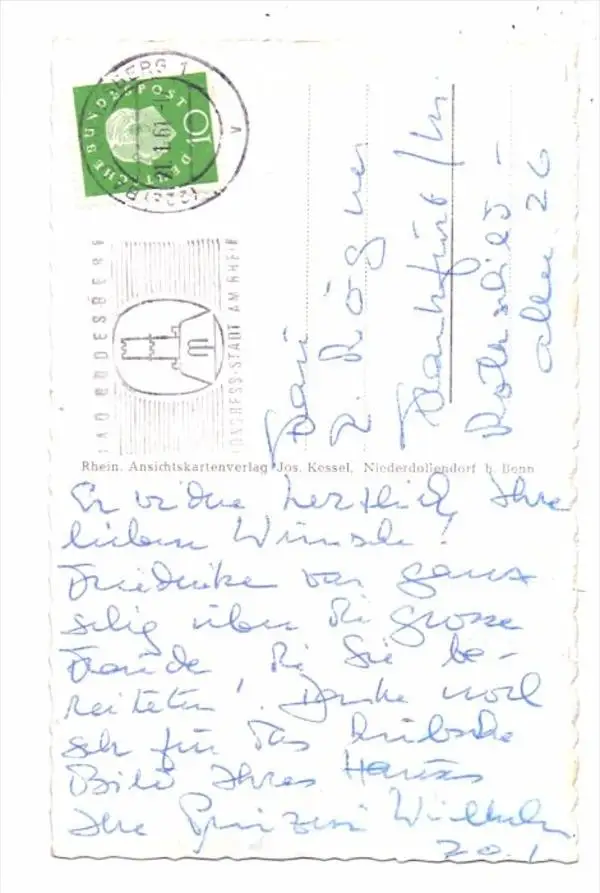 DEUTSCHE BUNDESPOST
10
BERG 1
21.1.61
BAD GODESBERG
KONGRESS-STADT AM RHEIN
Frau
Rögner
Frankfurt / M.
Rothschild-
allee 26
Rhein. Ansichtskartenverlag Jos. Kessel, Niederdollendorf b. Bonn
Erwidre herzlich Ihre
lieben Wünsche!
Friederike war ganz
selig über die grosse
Freude, die Sie be-
reiteten! Danke noch
sehr für das hübsche
Bild Ihres Hauses
Ihre Prinzess Wilhelm
20.1